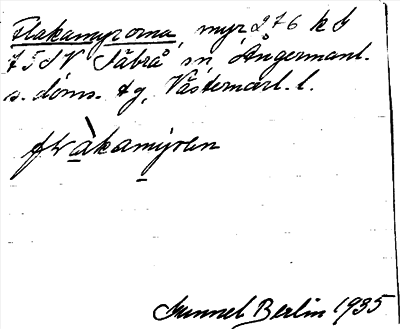 Flakamyrorna, myr 276 k I
7 I S V Säbrå sn, Ångermanl.
s. doms. tg, Västernorl. l.
flàkamýren
Gunnel Berlin 1935